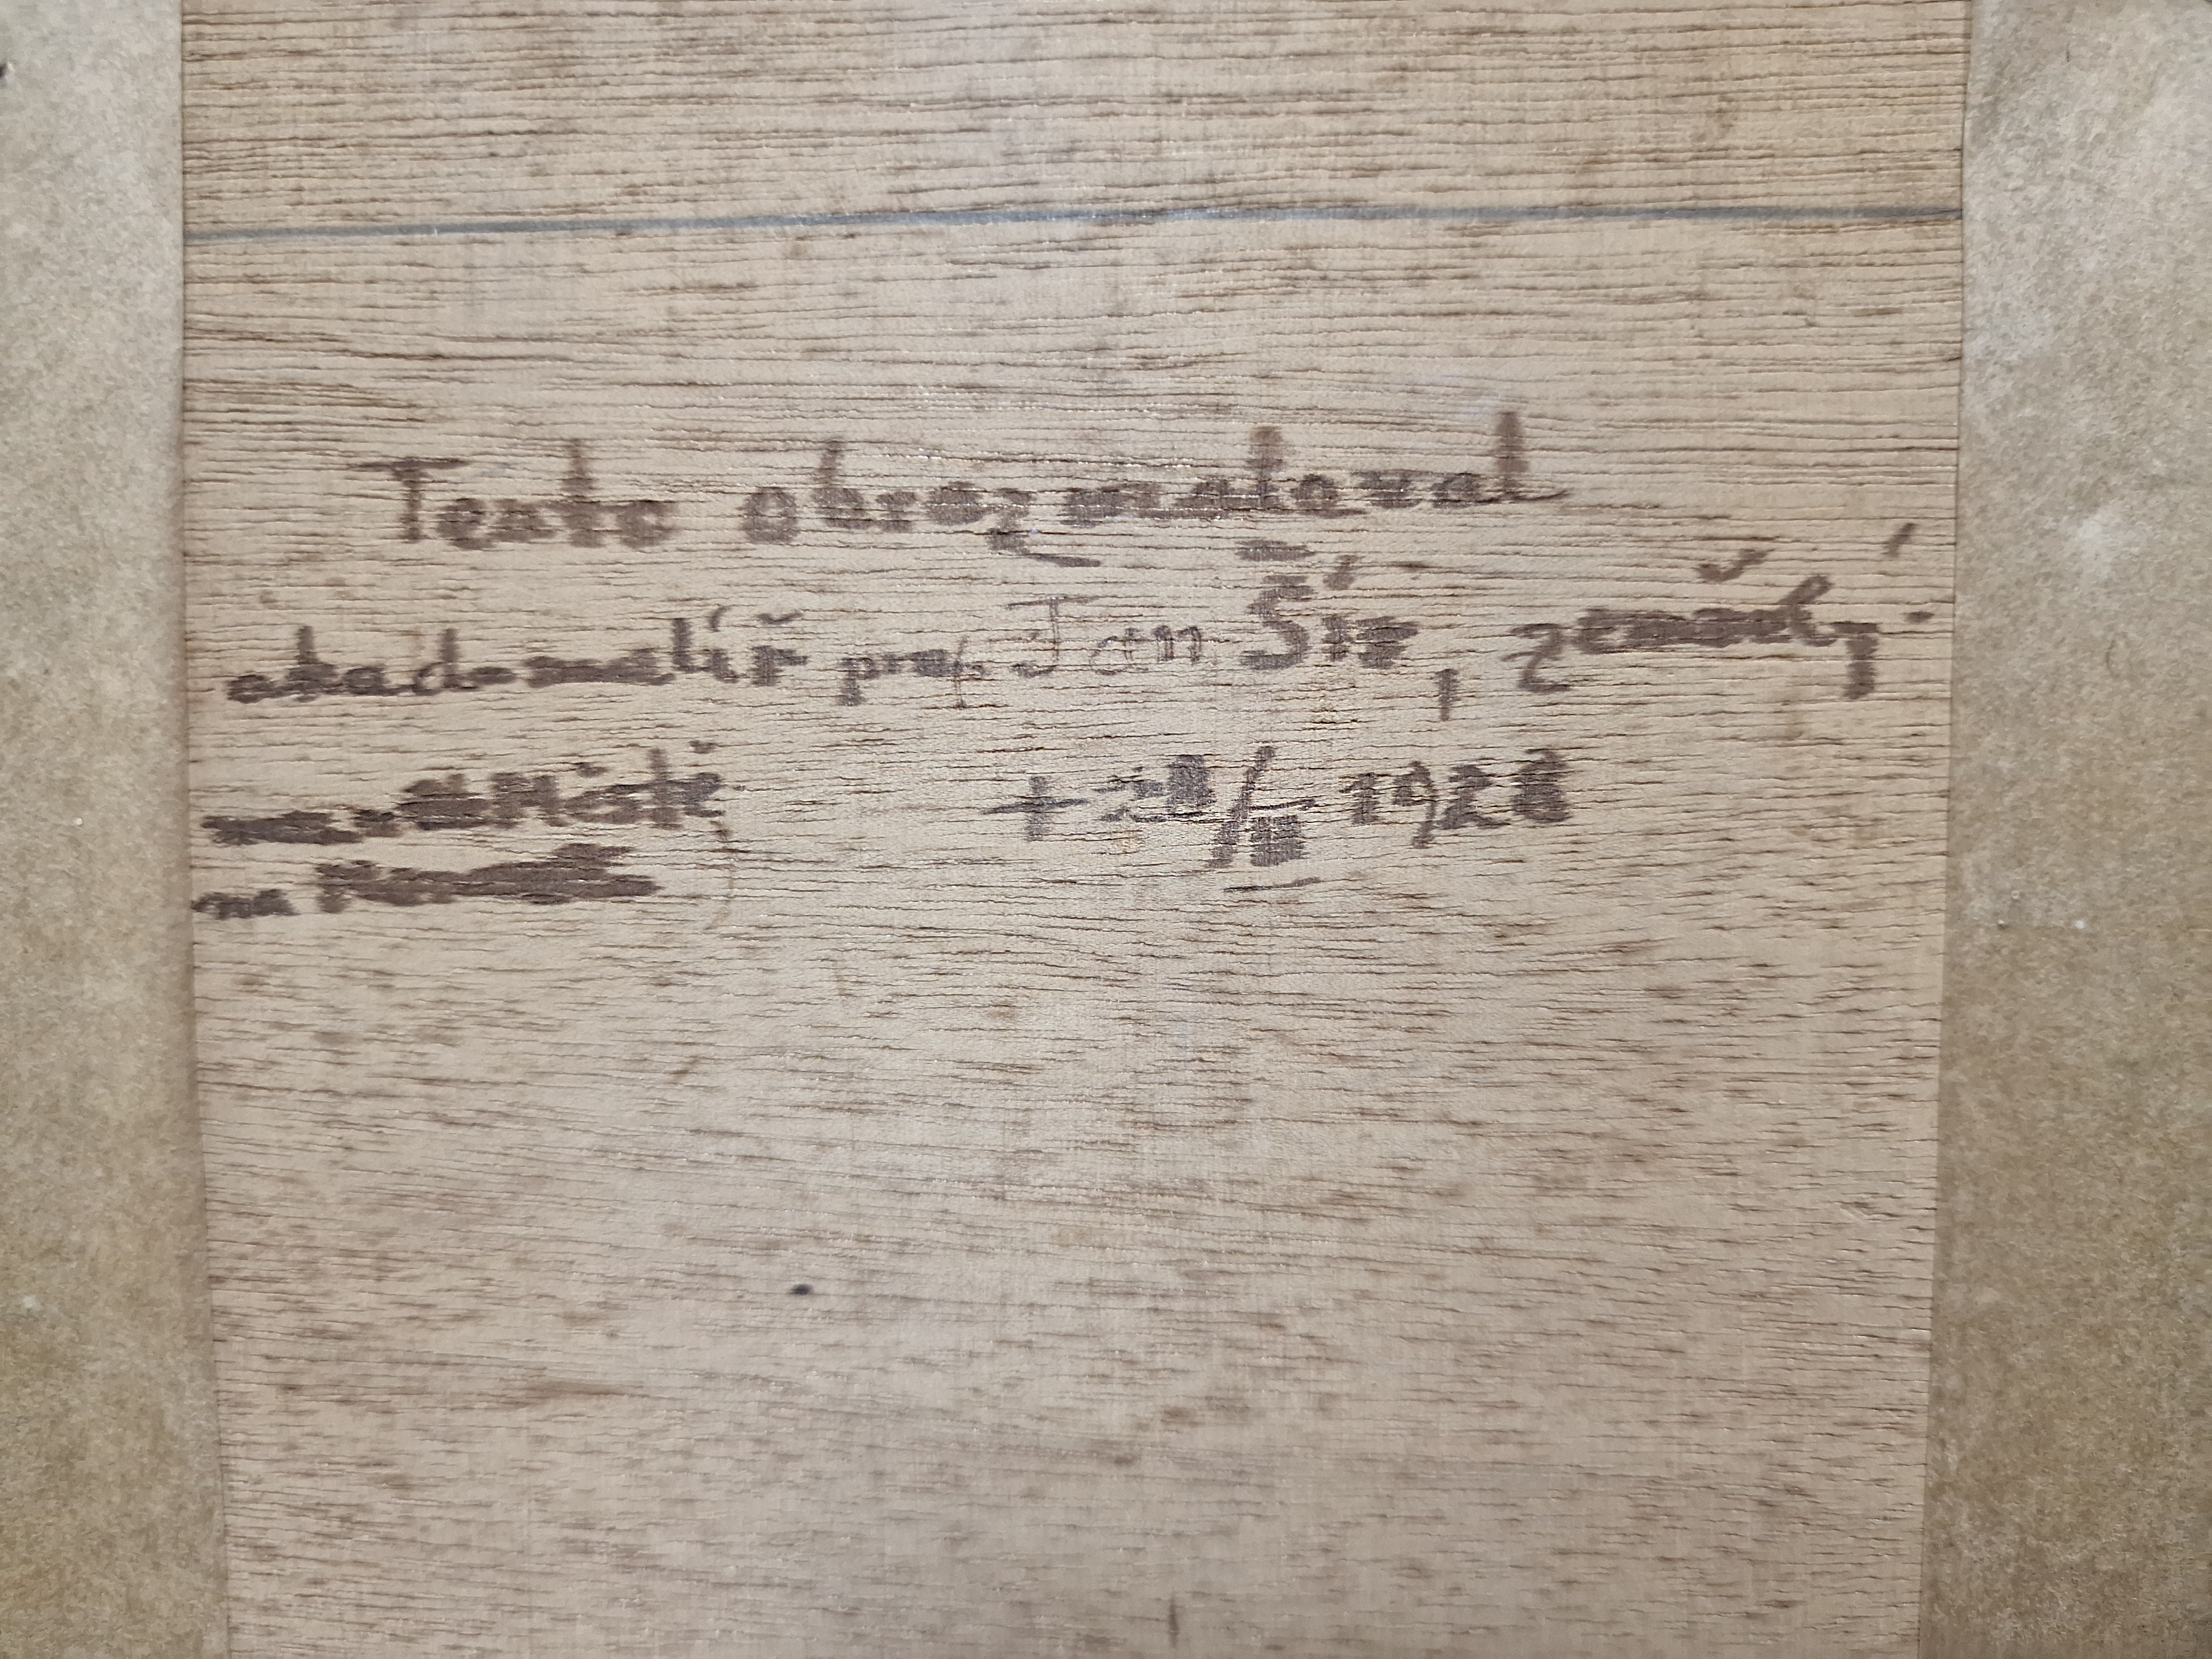 Tento obraz maloval
akad. malíř prof. Jan Šír, zemřelý
Městě + 1928
na